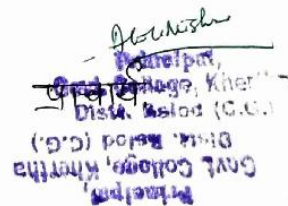 Principal,
प्राचार्य
Govt. College, Kher
Distt. Balod (C.G.)
Principal,
Govt. College, Khertha
Distt. Balod (C.G.)